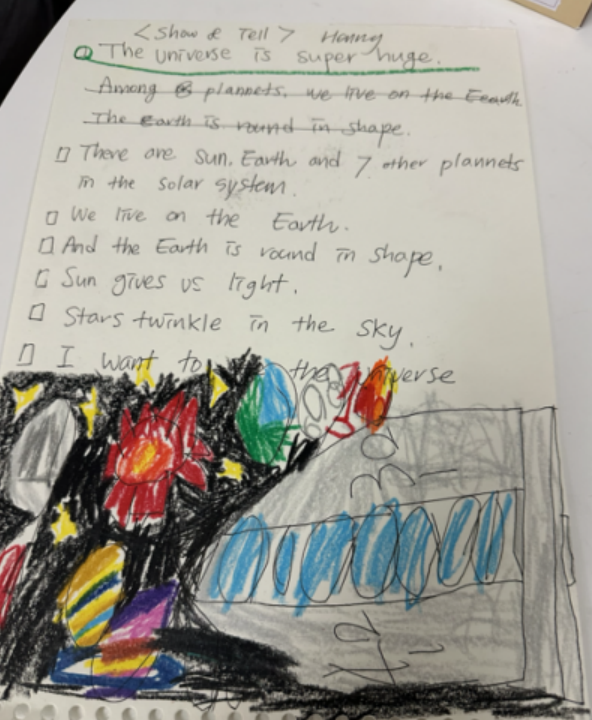 <Show & Tell> Henny
The universe is super huge.
Among 8 plannets, we live on the Eearth
The Earth is round in shape.
There are Sun, Earth and 7 other plannets
in the solar system.
We live on the Earth.
And the Earth is round in shape.
Sun gives us light.
Stars twinkle in the sky.
I want to the universe